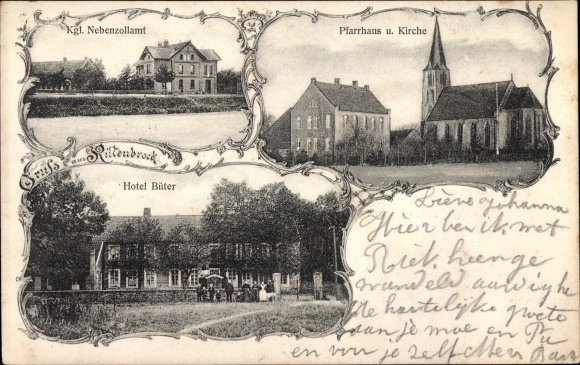 Kgl. Nebenzollamt
Pfarrhaus u. Kirche
Gruß aus Rütenbrock
Hotel Büter
Lieve Johanna
Hier ben ik met
Riek heenge
wandeld
De hartelijke groete
aan je moe en Pa
en voor je zelf